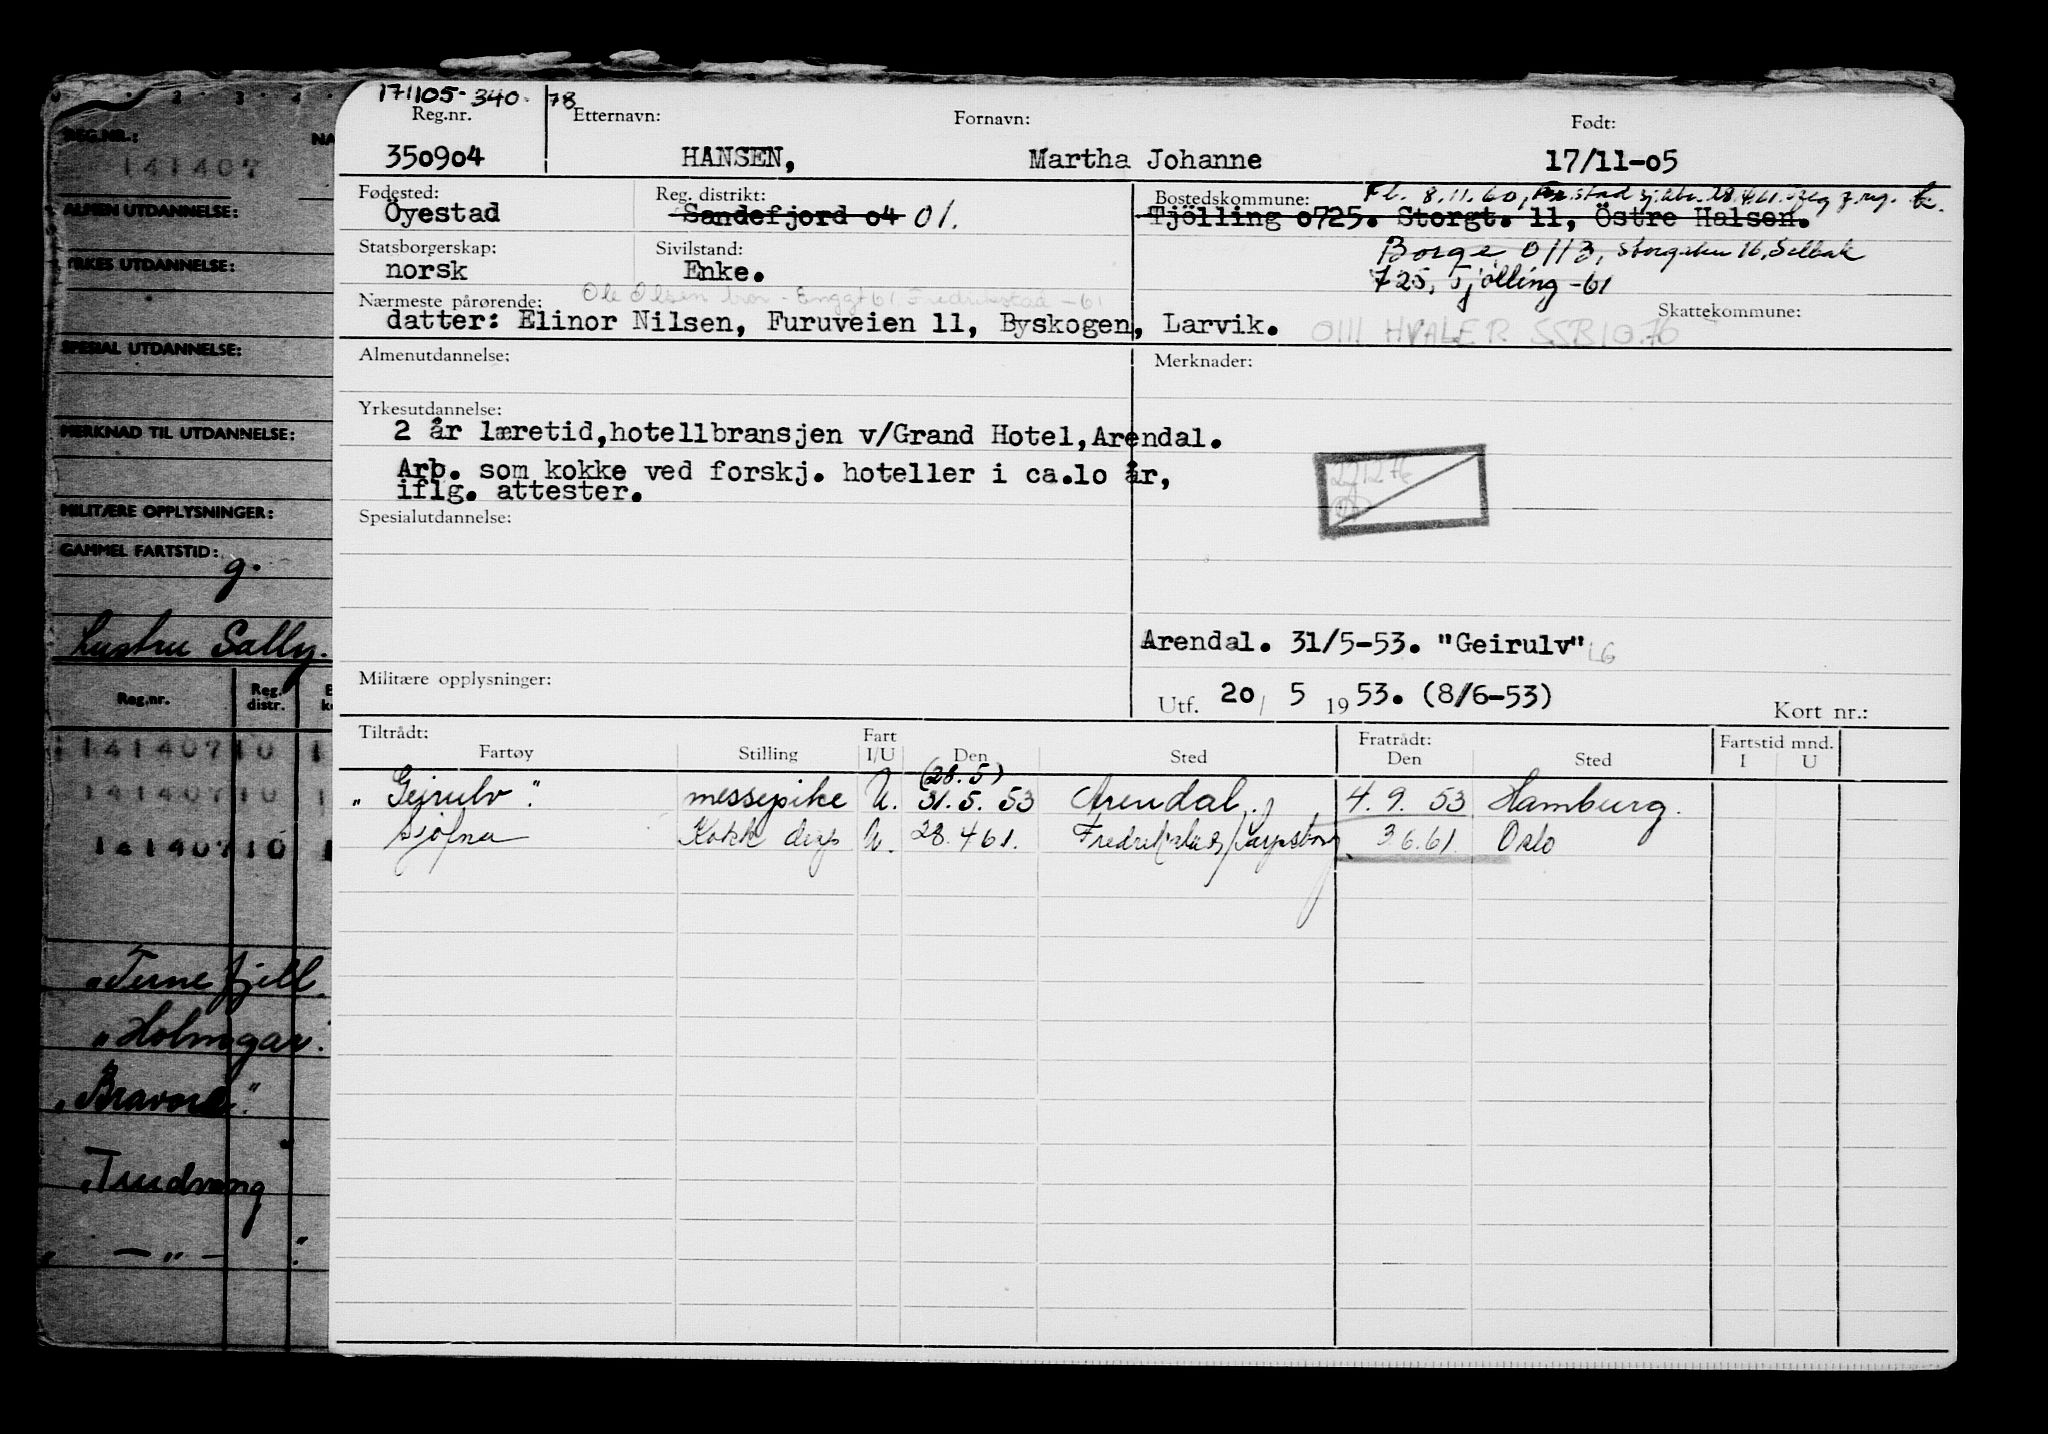 171105-340. 78
Reg.nr. Etternavn: Fornavn: Født:
350904 HANSEN, Martha Johanne 17/11-05
Fødested: Reg. distrikt: Bostedskommune: 8.11.60,
Öyestad Sandefjord o4 01. Tjölling o725. Storgt. 11, Östre Halsen.
Statsborgerskap: Sivilstand: Borge 0113, Storgaten 16, Selbak
norsk Enke. 725, Tjølling -61
Nærmeste pårørende: Ole Olsen bror - Enggt 61, Fredrikstad -61 Skattekommune:
datter: Elinor Nilsen, Furuveien 11, Byskogen, Larvik. 0111 HVALER SSB 10.76
Almenutdannelse: Merknader:
Yrkesutdannelse:
2 år læretid,hotellbransjen v/Grand Hotel,Arendal.
Arb. som kokke ved forskj. hoteller i ca.lo år,
iflg. attester.
Spesialutdannelse:
Arendal. 31/5-53. "Geirulv"
Militære opplysninger:
Utf. 20/ 5 1953. (8/6-53)
Kort nr.:
Tiltrådt: Fart Fratrådt: Fartstid mnd.
Fartøy Stilling I/U Den Sted Den Sted I U
(28.5)
"Geirulv". messepike U. 31.5.53 Arendal. 4.9.53 Hamburg.
Sjofna Kokk U. 28.4 61. 3 6.61. Oslo
REG.NR.: NA
141407
ALMEN UTDANNELSE:
YRKES UTDANNELSE:
SPESIAL UTDANNELSE:
MERKNAD TIL UTDANNELSE:
MILITÆRE OPPLYSNINGER:
GAMMEL FARTSTID:
g.
Sally.
Reg.nr. Reg. distr.
141407 10 1
141407 10 1
141407 10 1
"Ternefjell
"Holmgar
"Bravore"
"Trudvang"
" — " — "